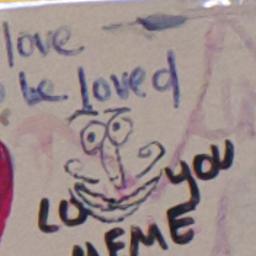 love
be loved
LO you
MEME